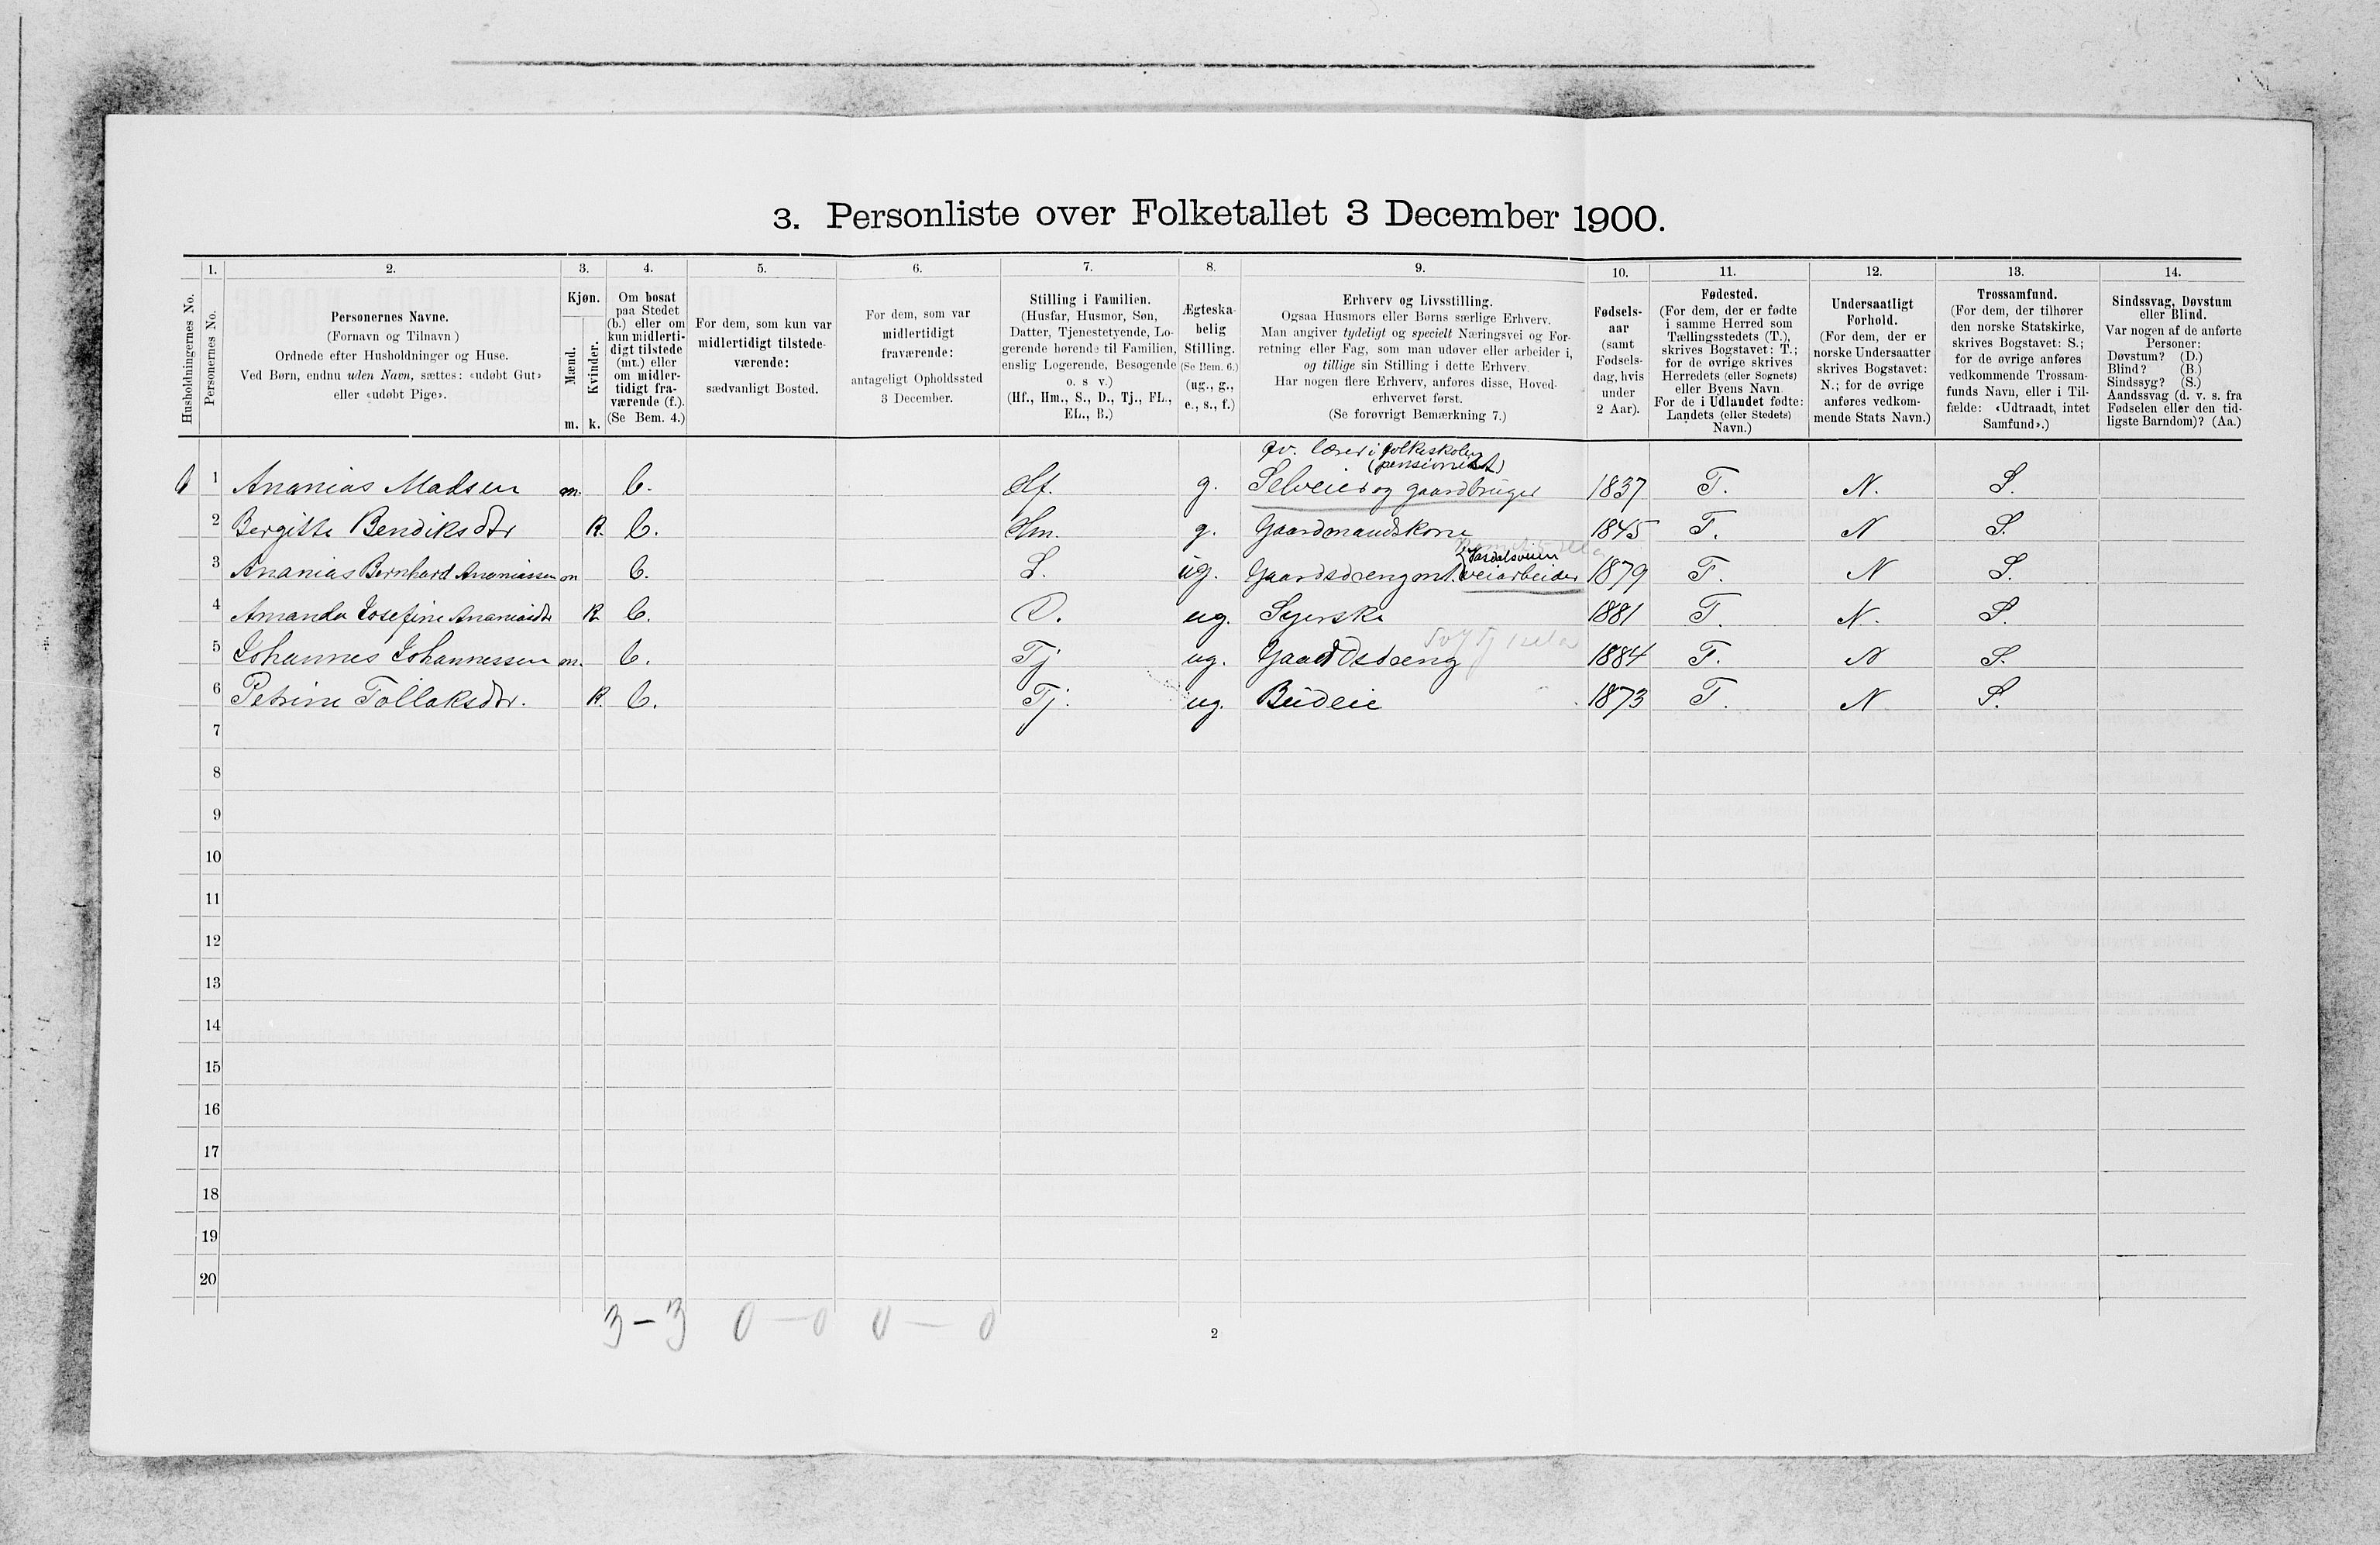 3. Personliste over Folketallet 3 December 1900.
1. 2. 3. 4. 5. 6. 7. 8. 9. 10. 11. 12. 13. 14.
Husholdningernes No.
Personernes No.
Personernes Navne.
(Fornavn og Tilnavn)
Ordnede efter Husholdninger og Huse.
Ved Børn, endnu uden Navn, sættes: «udøbt Gut»
eller «udøbt Pige».
Kjøn.
Mænd.
Kvinder.
m. k.
Om bosat
paa Stedet
(b.) eller om
kun midlerti-
digt tilstede
(mt.) eller
om midler-
tidigt fra-
værende (f.).
(Se Bem. 4.)
For dem, som kun var
midlertidigt tilstede-
værende:
sædvanligt Bosted.
For dem, som var
midlertidigt
fraværende:
antageligt Opholdssted
3 December.
Stilling i Familien.
(Husfar, Husmor, Søn,
Datter, Tjenestetyende, Lo-
gerende hørende til Familien,
enslig Logerende, Besøgende
o. s v.)
(Hf., Hm., S., D., Tj., FL.,
EL., B.)
Ægteska-
belig
Stilling.
(Se Bem. 6.)
(ug., g.,
e., s., f.)
Erhverv og Livsstilling.
Ogsaa Husmors eller Børns særlige Erhverv.
Man angiver tydeligt og specielt Næringsvei og For-
retning eller Fag, som man udøver eller arbeider i,
og tillige sin Stilling i dette Erhverv.
Har nogen flere Erhverv, anføres disse, Hoved-
erhvervet først.
(Se forøvrigt Bemærkning 7.)
Fødsels-
aar
(samt
Fødsels-
dag, hvis
under
2 Aar).
Fødested.
(For dem, der er fødte
i samme Herred som
Tællingsstedets (T.),
skrives Bogstavet: T.;
for de øvrige skrives
Herredets (eller Sognets)
eller Byens Navn
For de i Udlandet fødte:
Landets (eller Stedets)
Navn.)
Undersaatligt
Forhold.
(For dem, der er
norske Undersaatter
skrives Bogstavet:
N.; for de øvrige
anføres vedkom-
mende Stats Navn.)
Trossamfund.
(For dem, der tilhører
den norske Statskirke,
skrives Bogstavet: S.;
for de øvrige anføres
vedkommende Trossam-
funds Navn, eller i Til-
fælde: «Udtraadt, intet
Samfund».)
Sindssvag, Døvstum
eller Blind.
Var nogen af de anførte
Personer:
Døvstum? (D.)
Blind? (B.)
Sindssyg? (S.)
Aandssvag (d. v. s. fra
Fødselen eller den tid-
ligste Barndom)? (Aa.)
fv. lærer i folkeskolen
(pensionist)
1 Ananias Madsen m. b. Hf. g. Selveier og gaardbruger 1837 T. N. S.
2 Bergitte Bendiksdtr k. b. Hm. g. Gaardmandskone 1845 T. N S.
3 Ananias Bernhard Ananiassen m b. S. ug. Gaardsdreng veiarbeider 1879 T. N S.
4 Amanda Josefine Ananiasdtr k b. D. ug. Syerske 1881 T. N. S.
5 Johannes Johannessen m. b. Tj ug. Gaardsdreng 1884 T. N S.
6 Petrine Tollaksdtr. k. b. Tj. ug. Budeie 1873 T. N S.
7
8
9
10
11
12
13
14
15
16
17
18
19
20
3 – 3 0 – 0 0 – 0
2